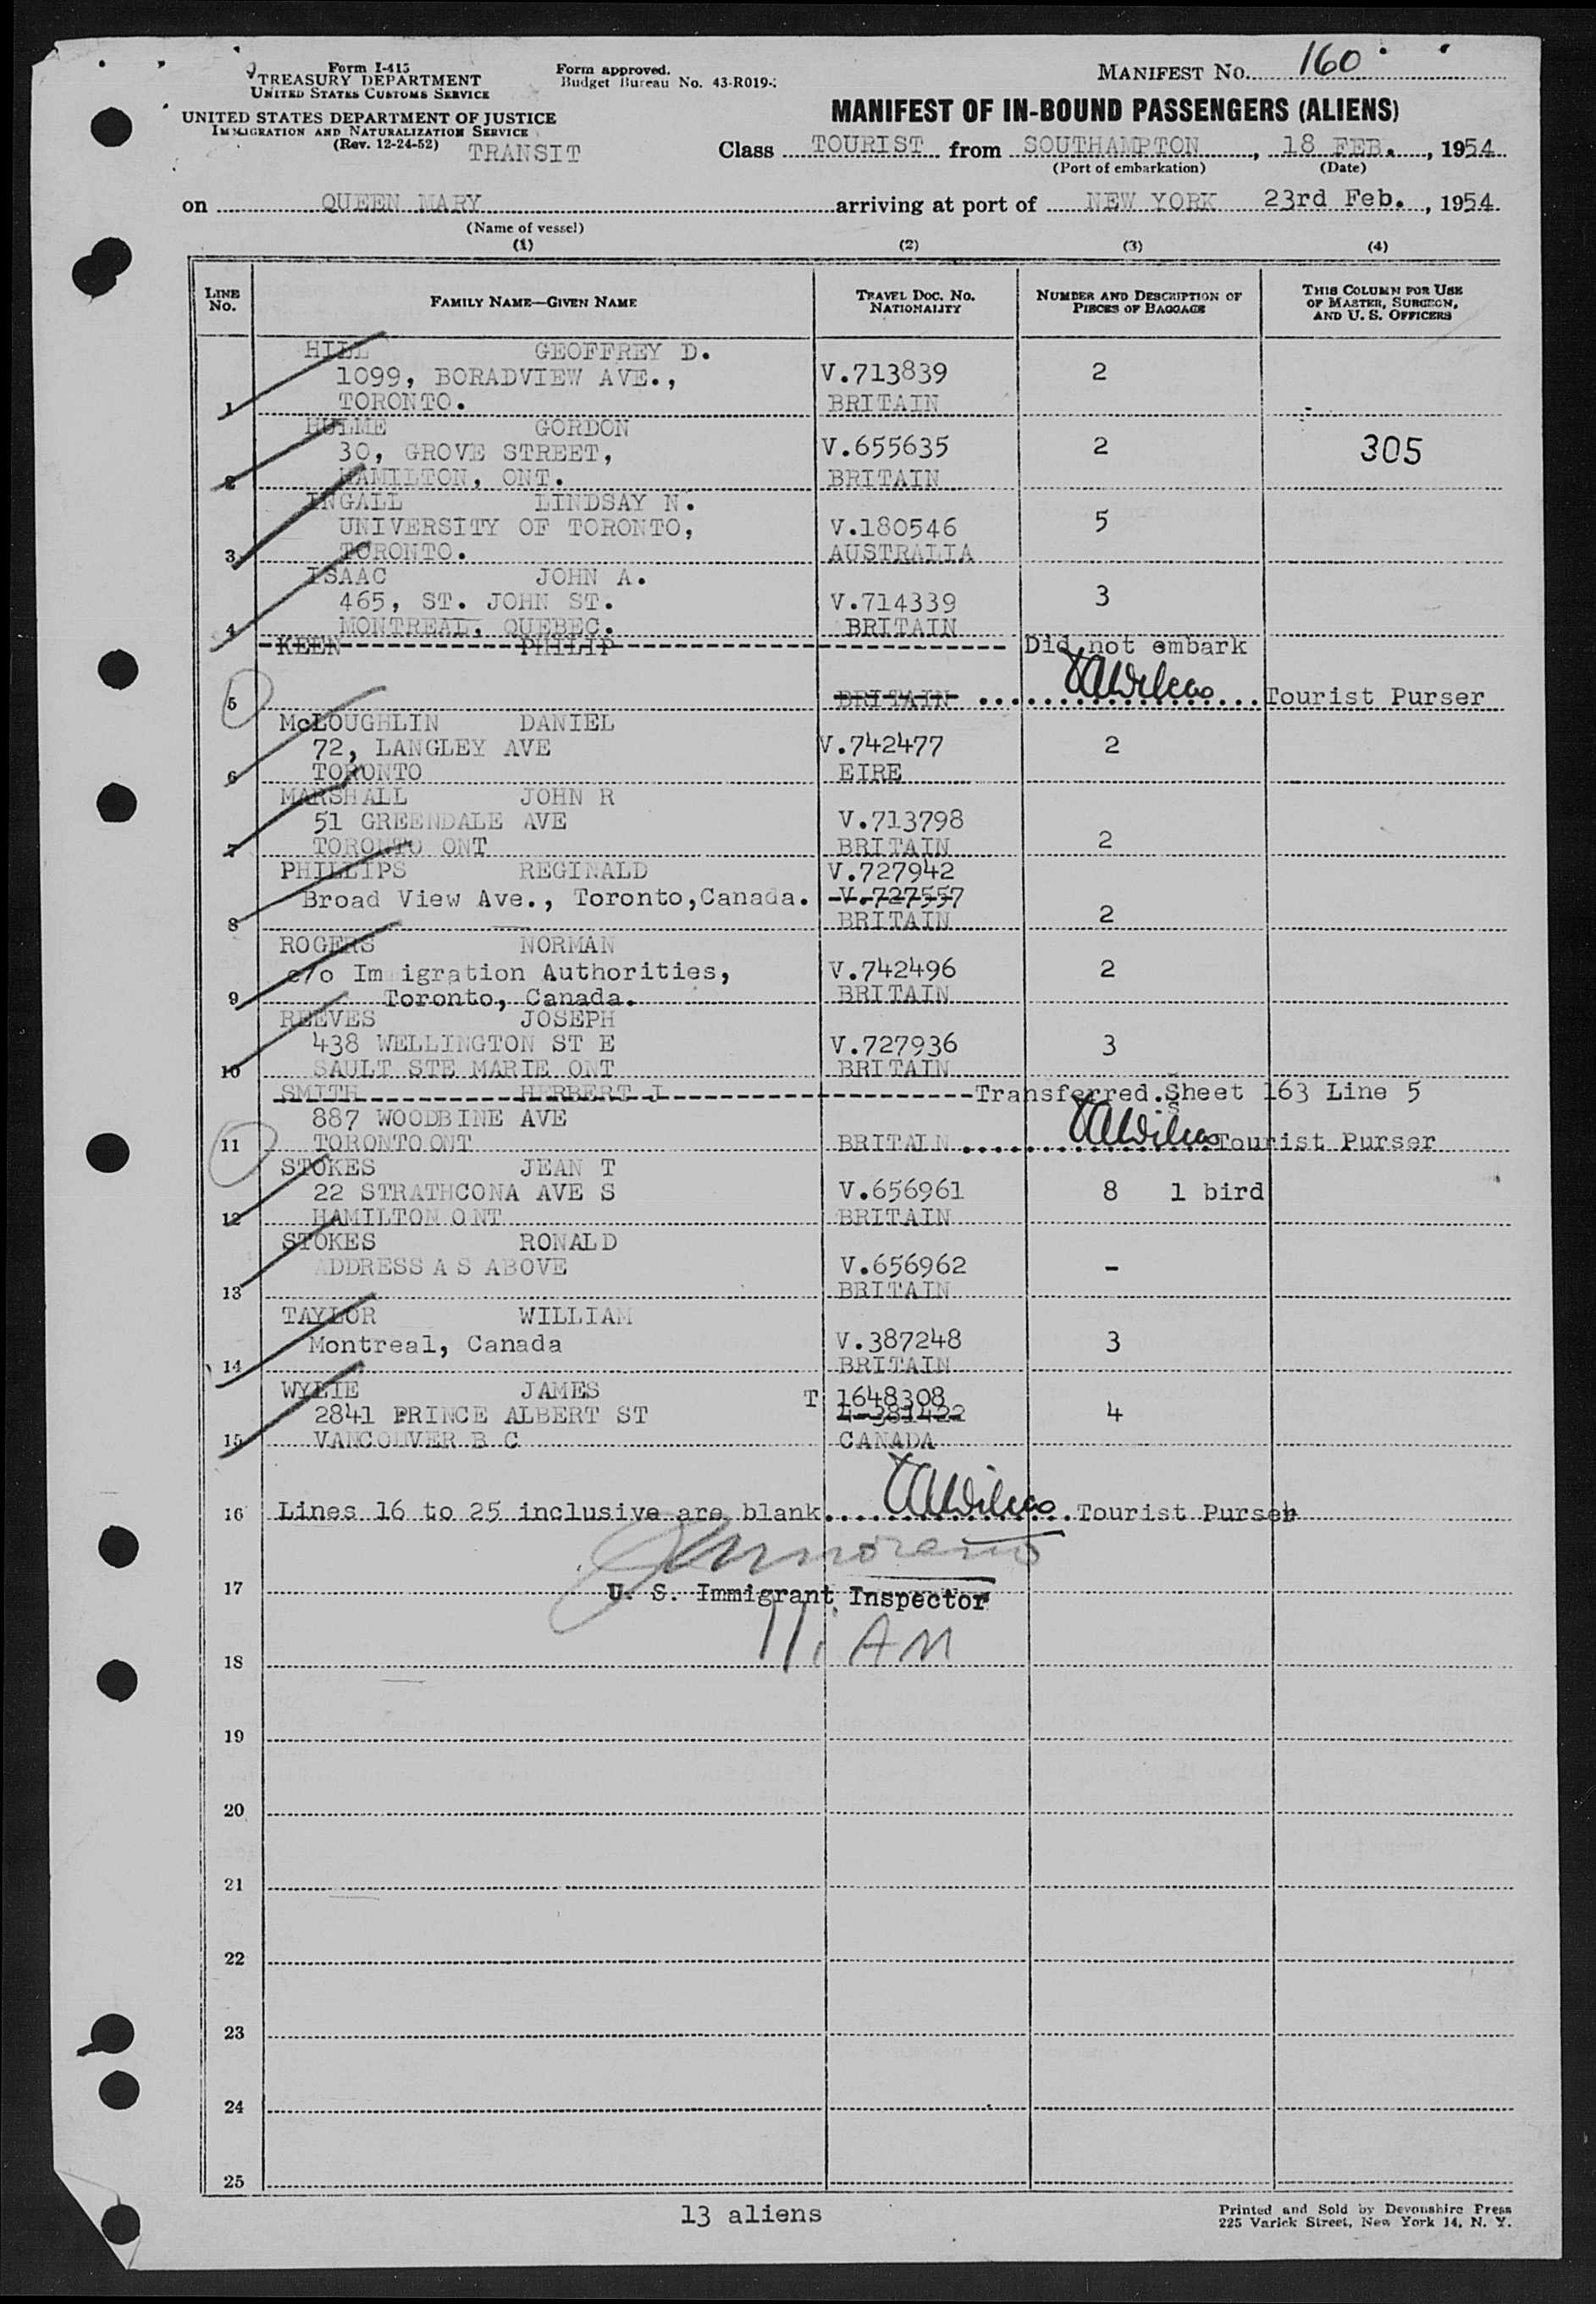 Form I-415
TREASURY DEPARTMENT
UNITED STATES CUSTOMS SERVICE
UNITED STATES DEPARTMENT OF JUSTICE
IMMIGRATION AND NATURALIZATION SERVICE
(Rev. 12-24-52)
TRANSIT
Form approved.
Budget Bureau No. 43-R019-
MANIFEST No. 160
MANIFEST OF IN-BOUND PASSENGERS (ALIENS)
Class TOURIST from SOUTHAMPTON, 18 FEB., 1954
(Port of embarkation) (Date)
on QUEEN MARY arriving at port of NEW YORK 23rd Feb., 1954
(Name of vessel)
(1) (2) (3) (4)
LINE No. FAMILY NAME—GIVEN NAME TRAVEL DOC. No. NATIONALITY NUMBER AND DESCRIPTION OF PIECES OF BAGGAGE THIS COLUMN FOR USE OF MASTER, SURGEON, AND U. S. OFFICERS
HILL GEOFFREY D.
1099, BORADVIEW AVE., V.713839 2
1 TORONTO. BRITAIN
HULME GORDON
30, GROVE STREET, V.655635 2 305
2 HAMILTON, ONT. BRITAIN
INGALL LINDSAY N.
UNIVERSITY OF TORONTO, V.180546 5
3 TORONTO. AUSTRALIA
ISAAC JOHN A.
465, ST. JOHN ST. V.714339 3
4 MONTREAL, QUEBEC. BRITAIN
KEEN PHILIP Did not embark
5 BRITAIN Tourist Purser
McLOUGHLIN DANIEL
72, LANGLEY AVE V.742477 2
6 TORONTO EIRE
MARSHALL JOHN R
51 GREENDALE AVE V.713798
7 TORONTO ONT BRITAIN 2
PHILLIPS REGINALD V.727942
Broad View Ave., Toronto,Canada. V.727557
8 BRITAIN 2
ROGERS NORMAN
c/o Im igration Authorities, V.742496 2
9 Toronto, Canada. BRITAIN
REEVES JOSEPH
438 WELLINGTON ST E V.727936 3
10 SAULT STE MARIE ONT BRITAIN
SMITH HERBERT J Transferred.Sheet 163 Line 5
887 WOODBINE AVE
11 TORONTO ONT BRITAIN Tourist Purser
STOKES JEAN T
22 STRATHCONA AVE S V.656961 8 1 bird
12 HAMILTON ONT BRITAIN
STOKES RONALD
ADDRESS A S ABOVE V.656962 -
13 BRITAIN
TAYLOR WILLIAM
Montreal, Canada V.387248 3
14 BRITAIN
WYLIE JAMES T 1648308
2841 PRINCE ALBERT ST 4-381422 4
15 VANCOUVER B C CANADA
16 Lines 16 to 25 inclusive are blank Tourist Purser
17 U. S. Immigrant Inspector
18 11. AM
19
20
21
22
23
24
25
13 aliens
Printed and Sold by Devonshire Press
225 Varick Street, New York 14, N. Y.